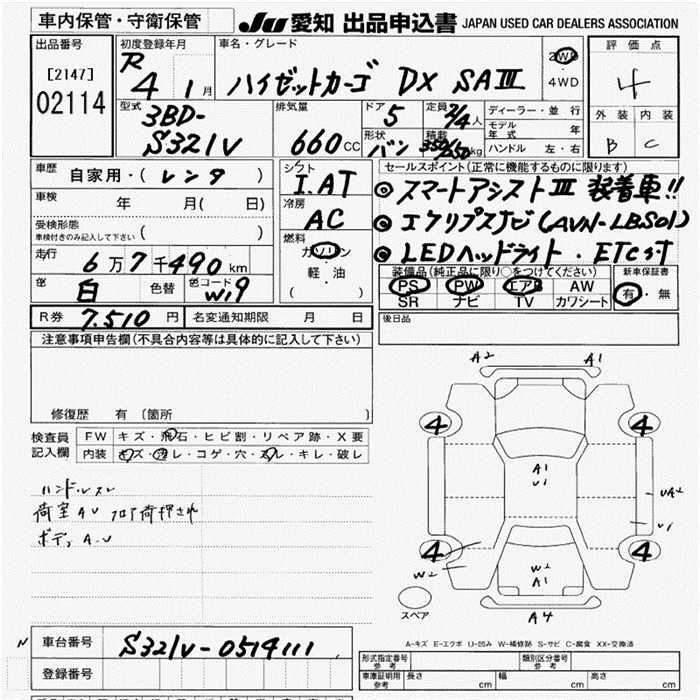 車内保管・守衛保管 JU 愛知 出品申込書 JAPAN USED CAR DEALERS ASSOCIATION
出品番号 [2147] 02114
初度登録年月 R 4 1月
車名・グレード ハイゼットカーゴ DX SAⅢ
2WD・4WD
評価点 4
外装 B 内装 C
型式 3BD-S321V
排気量 660cc
ドア 5
形状 バン
定員 2/4人
積載 350/250kg
ディーラー・並行
モデル年式 年
ハンドル 左・右
車歴 自家用・(レンタ)
車検 年 月( 日)
受検形態 車検付きのみ記入して下さい ( )
走行 6万7千490km
色 白 色替 色コード W19
シフト I.AT
冷房 AC
燃料 ガソリン・軽・油 ( )
セールスポイント(正常に機能するものに限ります)
◎スマートアシストⅢ 装着車!!
◎エクリプスナビ(AVN-LBS01)
◎LEDヘッドライト・ETC付
装備品(純正品に限り○をつけてください)
PS PW エアB AW
SR ナビ TV カワシート
新車保証書 有・無
R券 7.510円 名変通知期限 月 日
後日品
注意事項申告欄(不具合内容等は具体的に記入して下さい)
修復歴 有 〔箇所 〕
検査員記入欄
FW キズ・飛石・ヒビ割・リペア跡・X要
内装 キズ・汚レ・コゲ・穴・スレ・キレ・破レ
ハンドルスレ
荷室AU フロア荷押され
ボディA.U
A2 A1
4 4
A1
U1
UA2
U1
4 4
W2
W2
A1
スペア
A4
A-キズ E-エクボ U-凹み W-補修跡 S-サビ C-腐食 XX-交換済
車台番号 S321V-0514111
登録番号
形式指定番号 参考 類別区分番号 参考
車庫証明用 参考 長さ cm 幅 cm 高さ cm